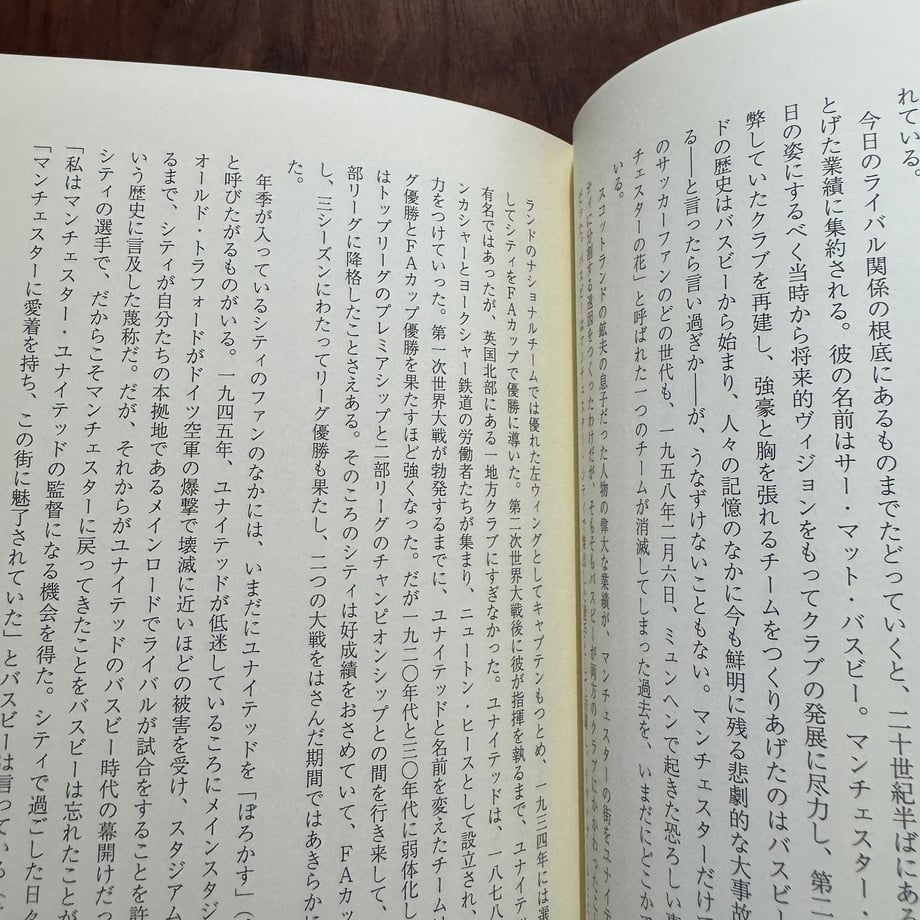 れている。
今日のライバル関係の根底にあるものまでたどっていくと、二十世紀半ばにある
とげた業績に集約される。彼の名前はサー・マット・バスビー。マンチェスター・
日の姿にするべく当時から将来的ヴィジョンをもってクラブの発展に尽力し、第二
弊していたクラブを再建し、強豪と胸を張れるチームをつくりあげたのはバスビ
ドの歴史はバスビーから始まり、人々の記憶のなかに今も鮮明に残る悲劇的な大事故
る――と言ったら言い過ぎか――が、うなずけないこともない。マンチェスターだけ
のサッカーファンのどの世代も、一九五八年二月六日、ミュンヘンで起きた恐ろしい事
チェスターの花」と呼ばれた一つのチームが消滅してしまった過去を、いまだにどこか
いる。
スコットランドの鉱夫の息子だった人物の偉大な業績が、マンチェスターの街をユナイテ
ティに分割する遠因をつくったわけだが、そもそもバスビーが両方のクラブにかかわったこ
ランドのナショナルチームでは優れた左ウィングとしてキャプテンもつとめ、一九三四年には選
してシティをFAカップで優勝に導いた。第二次世界大戦後に彼が指揮を執るまで、ユナイテッ
有名ではあったが、英国北部にある一地方クラブにすぎなかった。ユナイテッドは、一八七八
ンカシャーとヨークシャー鉄道の労働者たちが集まり、ニュートン・ヒースとして設立され、
力をつけていった。第一次世界大戦が勃発するまでに、ユナイテッドと名前を変えたチームは
グ優勝とFAカップ優勝を果たすほど強くなった。だが一九二〇年代と三〇年代に弱体化し
はトップリーグのプレミアシップと二部リーグのチャンピオンシップとの間を行き来して、
部リーグに降格したことさえある。そのころのシティは好成績をおさめていて、FAカッ
し、三シーズンにわたってリーグ優勝も果たし、二つの大戦をはさんだ期間ではあきらかに
た。
年季が入っているシティのファンのなかには、いまだにユナイテッドを「ぼろかす」（
と呼びたがるものがいる。一九四五年、ユナイテッドが低迷しているころにメインスタジ
オールド・トラフォードがドイツ空軍の爆撃で壊滅に近いほどの被害を受け、スタジアム
るまで、シティが自分たちの本拠地であるメインロードでライバルが試合をすることを許
いう歴史に言及した蔑称だ。だが、それからがユナイテッドのバスビー時代の幕開けだっ
シティの選手で、だからこそマンチェスターに戻ってきたことをバスビーは忘れたことが
「私はマンチェスター・ユナイテッドの監督になる機会を得た。シティで過ごした日々
「マンチェスターに愛着を持ち、この街に魅了されていた」とバスビーは言っている